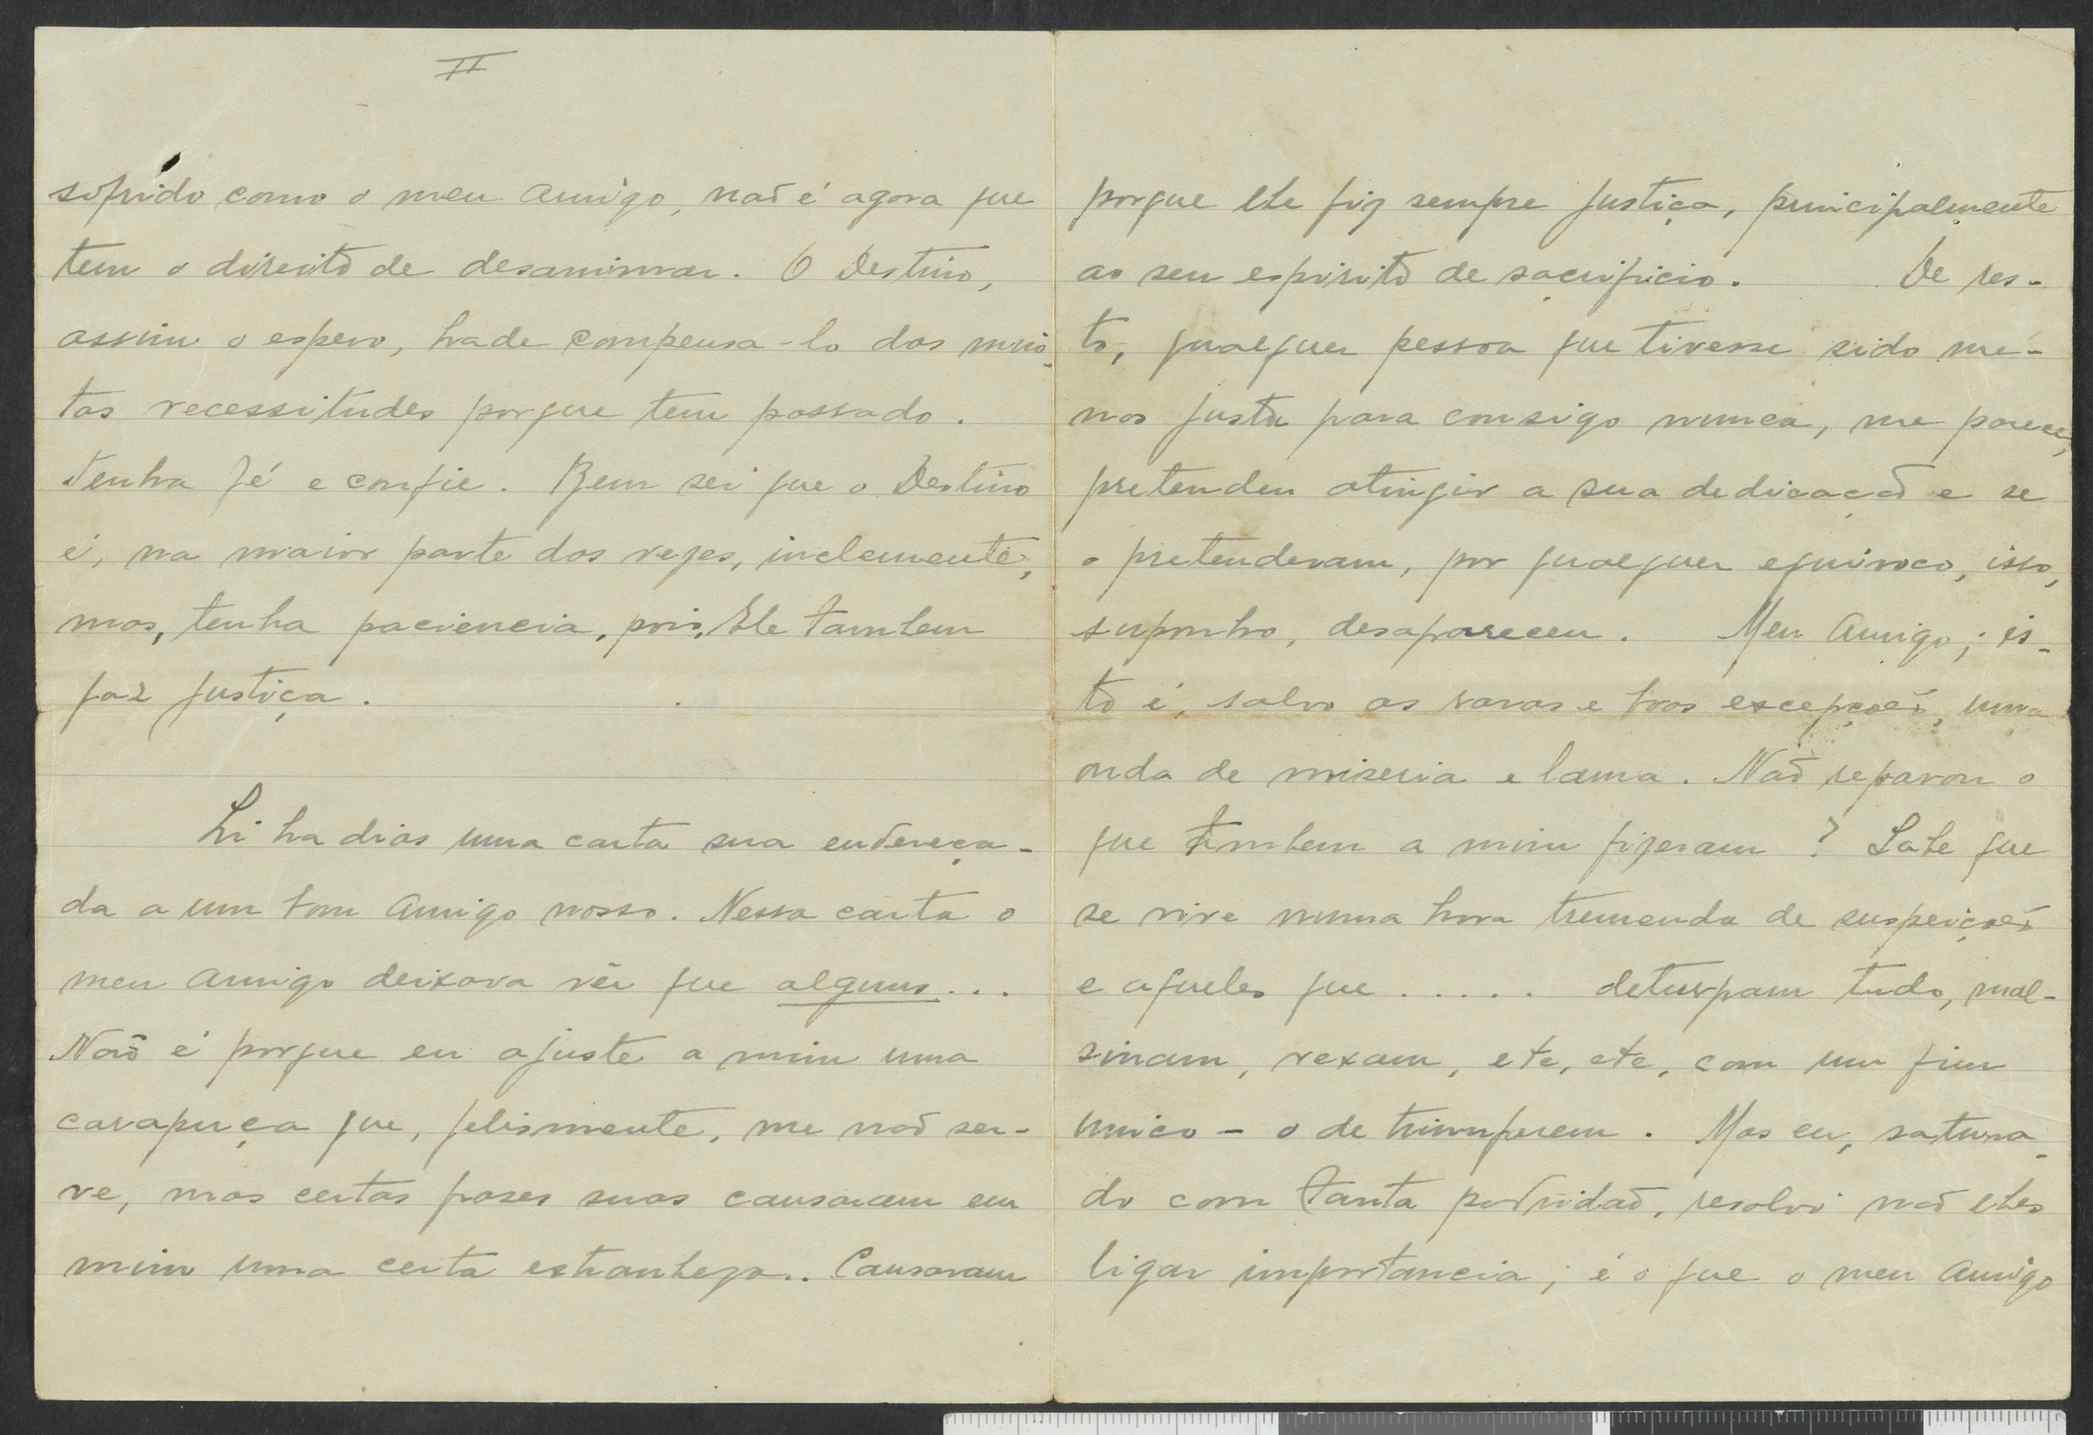 II
sofrido como o meu amigo, não é agora que
tem o direito de desanimar. O Destino,
assim o espero, hade compensa-lo das mui-
tas vecessitudes porque tem passado.
Tenha fé e confie. Bem sei que o Destino
é, na maior parte das vezes, inclemente,
mas, tenha paciencia, pois, Ele tambem
faz justiça.
Li ha dias uma carta sua endereça-
da a um bom amigo nosso. Nessa carta o
meu amigo deixava vêr que alguns...
Não é porque eu ajuste a mim uma
carapuça que, felismente, me não ser-
ve, mas certas frases suas causaram em
mim uma certa estranheza.. Causaram
porque lhe fiz sempre justiça, principalmente
ao seu espirito de sacrificio. De res-
to, qualquer pessoa que tivesse sido me-
nos justa para comsigo nunca, me parece,
pretendeu atingir a sua dedicação e se
o pretenderam, por qualquer equivoco, isso,
suponho, desapareceu. Meu Amigo; is-
to é, salvo as raras e boas excepções, uma
onda de miseria e lama. Não reparou o
que tambem a mim fizeram? Sabe que
se vive numa hora tremenda de suspeições
e aqueles que ..... deturpam tudo, mal-
sinam, vexam, etc, etc, com um fim
unico - o de triunfarem. Mas eu, satura-
do com tanta podridão, resolvi não lhes
ligar importancia; é o que o meu amigo